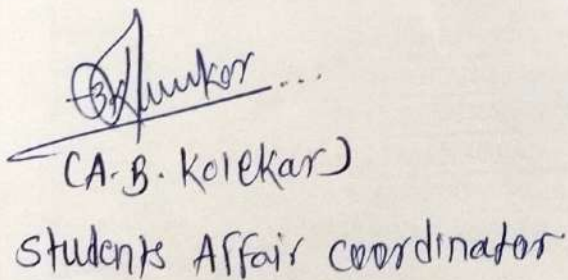 (A. B. Kolekar)
Students Affair coordinator